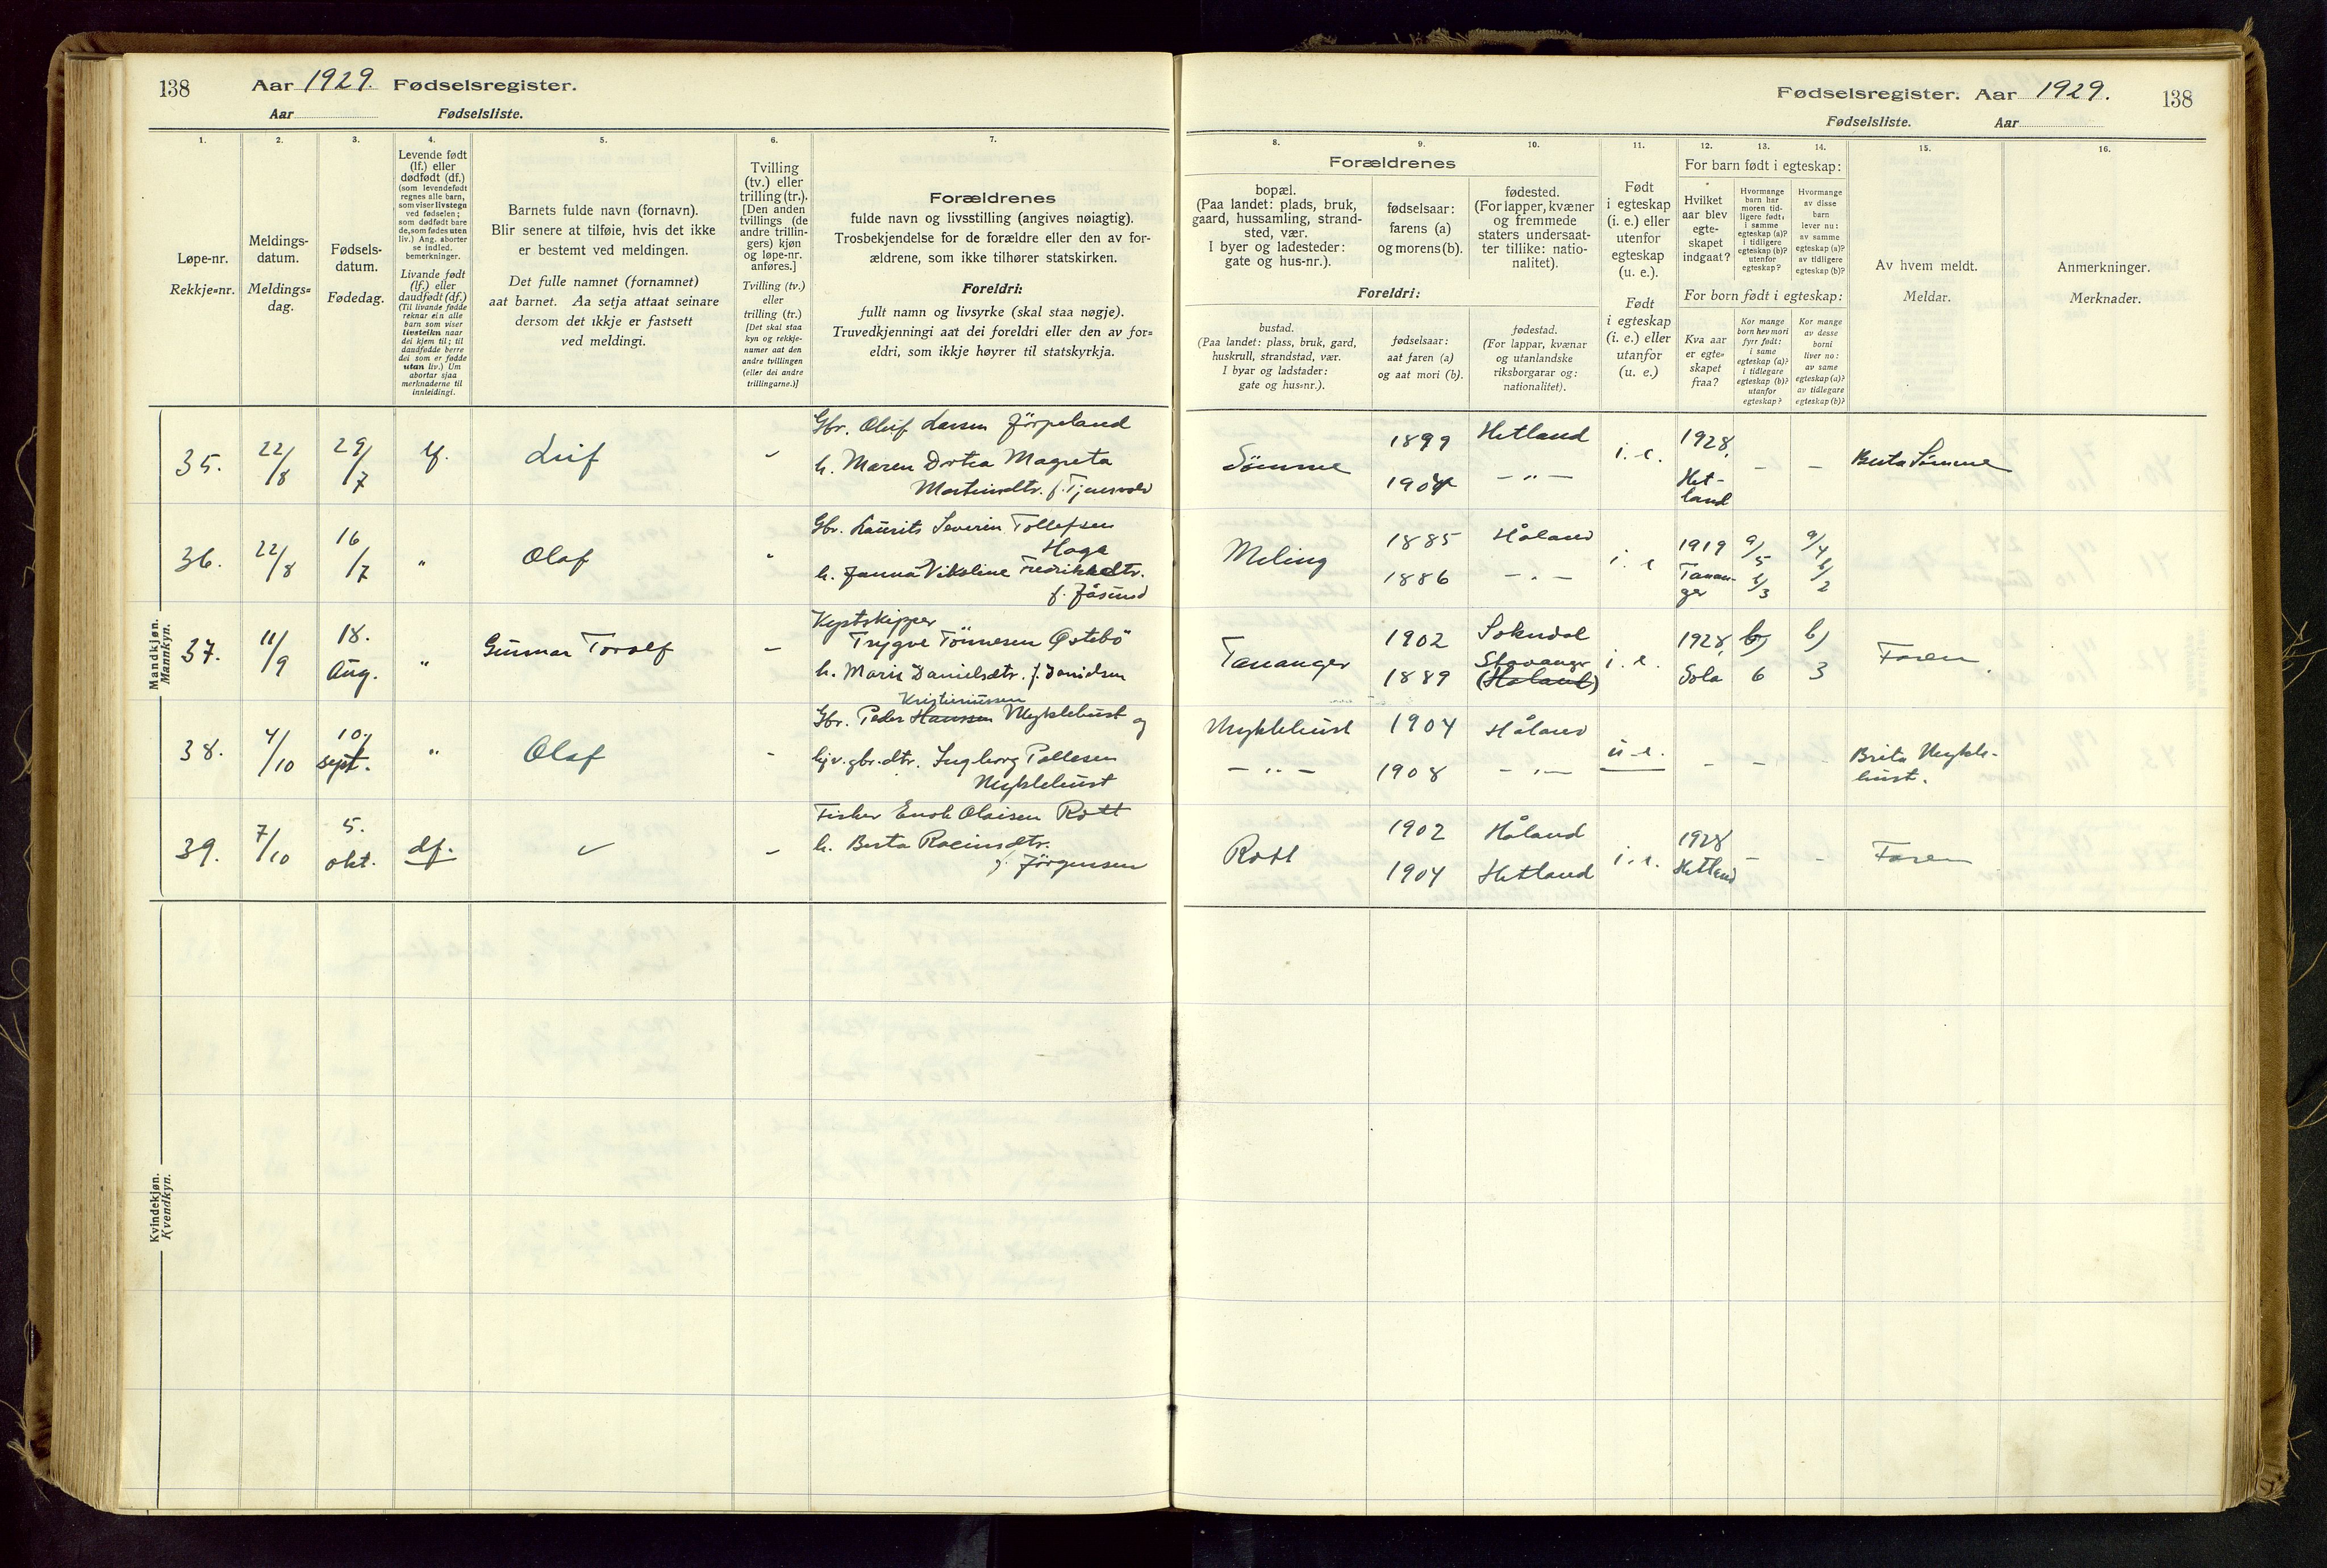 138
Aar 1929. Fødselsregister.
Aar Fødselsliste.
1.
2.
3.
4.
5.
6.
7.
Løpe-nr.
Rekkje-nr.
Meldings-
datum.
Meldings-
dag.
Fødsels-
datum.
Fødedag.
Levende født
(lf.) eller
dødfødt (df.)
(som levendefødt
regnes alle barn,
som viser livstegn
ved fødselen;
som dødfødt bare
de, som fødes uten
liv.) Ang. aborter
se indled.
bemerkninger.
Livande født
(lf.) eller
daudfødt (df.)
(Til livande fødde
reknar ein alle
barn som viser
livsteikn naar
dei kjem til; til
daudfødde berre
dei som er fødde
utan liv.) Um
abortar sjaa
merknaderne til
innleidingi.
Barnets fulde navn (fornavn).
Blir senere at tilføie, hvis det ikke
er bestemt ved meldingen.
Det fulle namnet (fornamnet)
aat barnet. Aa setja attaat seinare
dersom det ikkje er fastsett
ved meldingi.
Tvilling
(tv.) eller
trilling (tr.).
[Den anden
tvillings (de
andre trillin-
gers) kjøn
og løpe-nr.
anføres.]
Tvilling (tv.)
eller
trilling (tr.)
[Det skal staa
kyn og rekkje-
numer aat den
andre tvillingen
(eller dei andre
trillingarne.)]
Forældrenes
fulde navn og livsstilling (angives nøiagtig).
Trosbekjendelse for de forældre eller den av for-
ældrene, som ikke tilhører statskirken.
Foreldri:
fullt namn og livsyrke (skal staa nøgje).
Truvedkjenningi aat dei foreldri eller den av for-
eldri, som ikkje høyrer til statskyrkja.
Fødselsregister. Aar 1929.
138
Fødselsliste. Aar
8.
9.
10.
11.
12.
13.
14.
15.
16.
Forældrenes
bopæl.
(Paa landet: plads, bruk,
gaard, hussamling, strand-
sted, vær.
I byer og ladesteder:
gate og hus-nr.).
fødselsaar:
farens (a)
og morens (b).
fødested.
(For lapper, kvæner
og fremmede
staters undersaat-
ter tillike: natio-
nalitet).
Foreldri:
bustad.
(Paa landet: plass, bruk, gard,
huskrull, strandstad, vær.
I byar og ladstader:
gate og hus-nr.).
fødselsaar:
aat faren (a)
og aat mori (b).
fødestad.
(For lappar, kvænar
og utanlandske
riksborgarar og:
nationalitet).
Født
i egteskap
(i. e.) eller
utenfor
egteskap
(u. e.).
Født
i egteskap
(i. e.) eller
utanfor
(u. e.)
For barn født i egteskap:
Hvilket
aar blev
egte-
skapet
indgaat?
Hvormange
barn har
moren tid-
ligere født:
i samme
egteskap (a)?
i tidligere
egteskap (b)?
utenfor
egteskap?
Hvormange
av disse
barn
lever nu:
av samme
egteskap (a)?
av tidligere
egteskap (b)?
For born født i egteskap:
Kva aar
er egte-
skapet
fraa?
Kor mange
born hev mori
fyrr født:
i same
egteskap (a)?
i tidlegare
egteskap (b)?
utanfor
egteskap?
Kor mange
av desse
borni
liver no:
av same
egteskap (a)?
av tidlegare
egteskap (b)?
Av hvem meldt.
Meldar.
Anmerkninger.
Merknader.
Mandkjøn.
Mannkyn.
35. 22/8 29/7 lf. Leif -
Gbr. Oluf Larsen Jörpeland
h. Maren Dortea Magreta
Martinsdtr. f. Tjensvold
Sömme 1899 Hetland i. e. 1928, - - Berta Sömme
1904 - " - Het-
land
36. 22/8 16/7 " Olaf "
Gbr. Laurits Severin Tollefsen
Haga
h. Janna Vikoline Fredrikkedtr.
f. Jåsund
Meling 1885 Håland i. e 1919 a/5 a/4
1886 - " - Tanan-
ger b/3 b/2
37. 11/9 18. Aug. " Gunnar Torolf -
Kystskipper
Trygve Tönnesen Östebö
h. Marie Danielsdtr. f. Danielsen
Tananger 1902 Sokndal i. e. 1928, b) b) Faren.
1889 Stavanger (Haland) Sola 6 3
38. 4/10 10, sept. " Olaf -
Kristiniussen
Gbr. Peder Hanssen Myklebust og
hjv. gbr. dtr. Ingborg Pallesen
Myklebust
Myklebust 1904 Håland u. e. - - - Brita Mykle-
bust.
- " - 1908 - " -
39. 7/10 5. okt. df. -
Fisker Enok Olaisen Rott
h. Berta Rasmusdtr.
f. Jörgensen
Rott 1902 Håland i. e. 1928 - - Faren
1904 Hetland Hetland
Kvindekjøn.
Kvendkyn.